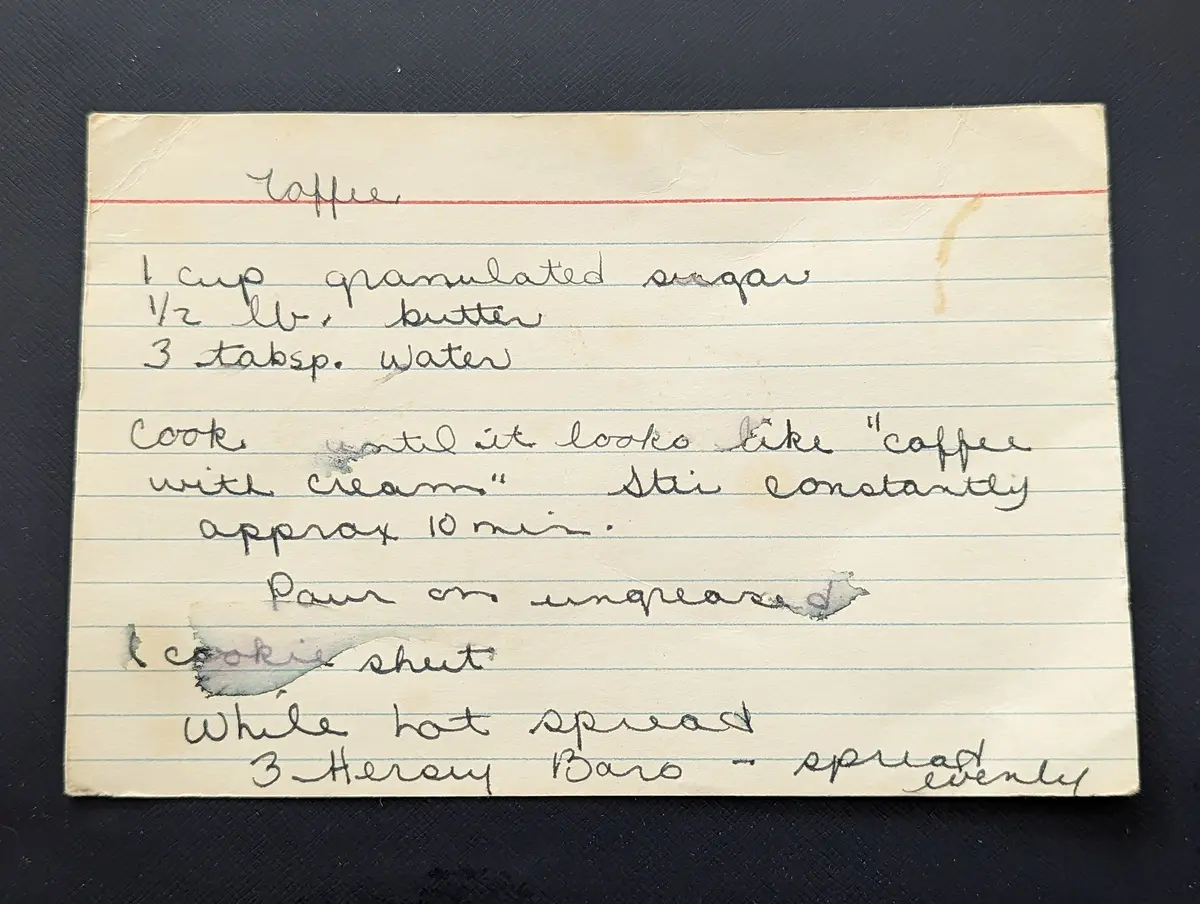 Toffee
1 cup granulated sugar
1/2 lb. butter
3 tabsp. water
Cook until it looks like "coffee
with cream" Stir constantly
approx 10 min.
Pour on ungreased
1 cookie sheet
While hot spread
3 Hersey Bars - spread
evenly